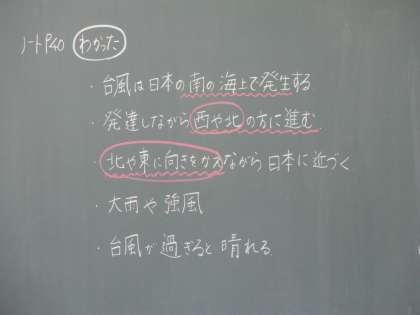 ノートP.40 わかった
・台風は日本の南の海上で発生する
・発達しながら西や北の方に進む
・北や東に向きをかえながら日本に近づく
・大雨や強風
・台風が過ぎると晴れる